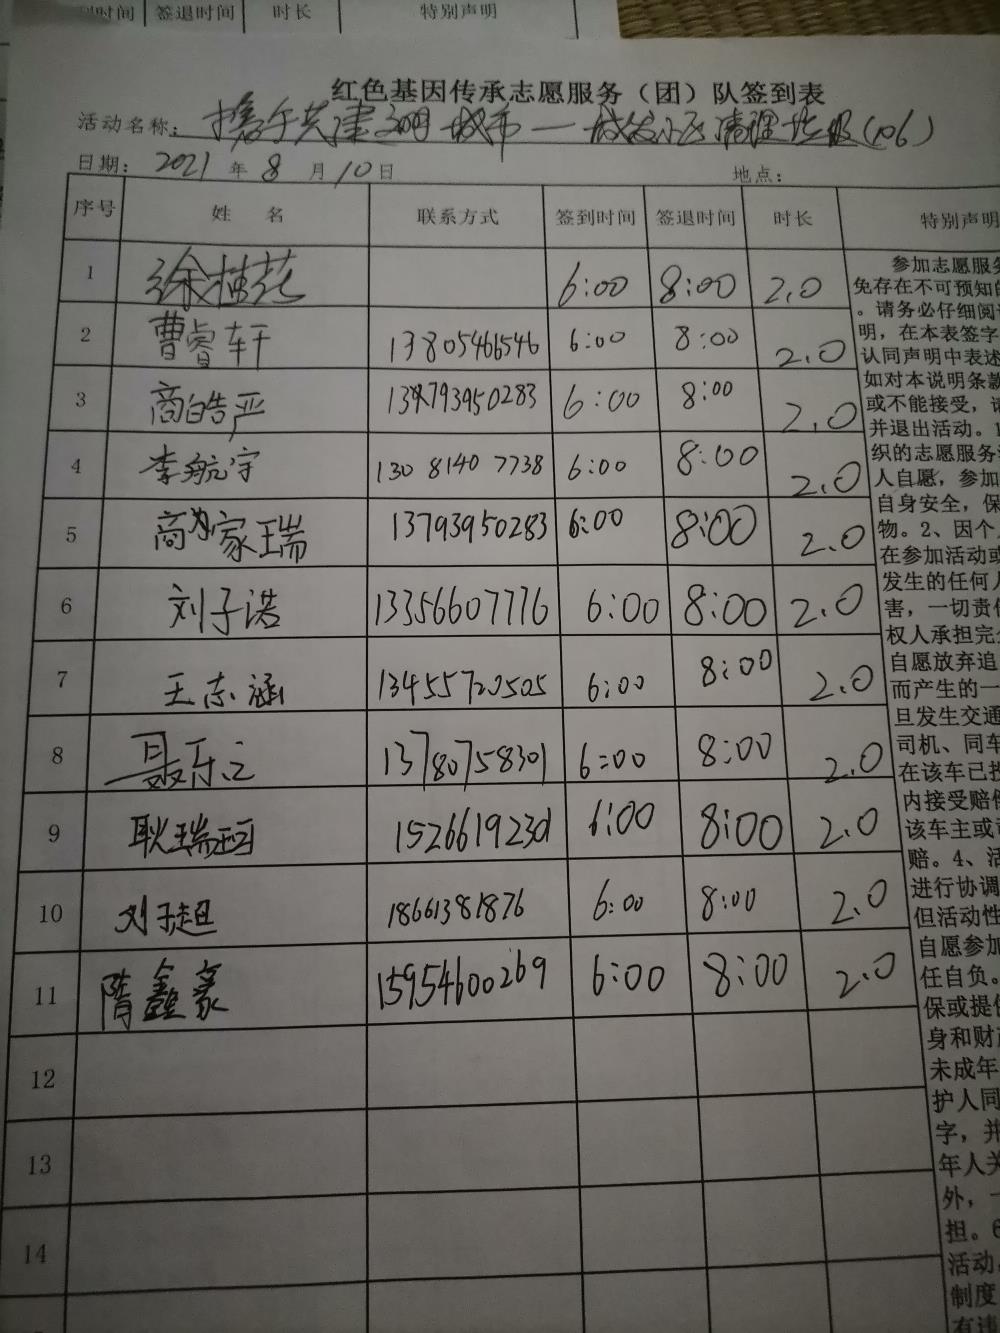 到时间 签退时间 时长 特别声明
红色基因传承志愿服务（团）队签到表
活动名称：携手共建文明城市—城发小区清理垃圾(106)
日期：2021年8月10日 地点：
序号 姓 名 联系方式 签到时间 签退时间 时长 特别声明
1 徐桂花 6:00 8:00 2.0
2 曹睿轩 13805466546 6:00 8:00 2.0
3 商皓严 13793950283 6:00 8:00 2.0
4 李航宇 13081407738 6:00 8:00 2.0
5 商家瑞 13793950283 6:00 8:00 2.0
6 刘子诺 13356607776 6:00 8:00 2.0
7 王志涵 13455720505 6:00 8:00 2.0
8 聂乐之 13780758301 6:00 8:00 2.0
9 耿瑞珂 15266192301 6:00 8:00 2.0
10 刘于超 18661381876 6:00 8:00 2.0
11 隋鑫豪 15954600269 6:00 8:00 2.0
12
13
14
参加志愿服务
免存在不可预知的
。请务必仔细阅
明，在本表签字
认同声明中表述
如对本说明条款
或不能接受，请
并退出活动。1
织的志愿服务
人自愿，参加
自身安全，保
物。2、因个人
在参加活动或
发生的任何人
害，一切责任
权人承担完全
自愿放弃追
而产生的一
旦发生交通
司机、同车
在该车已投
内接受赔偿
该车主或
赔。4、活
进行协调
但活动性
自愿参加
任自负。
保或提供
身和财产
未成年
护人同
字，并
年人关
外，一
担。6
活动，
制度
有违